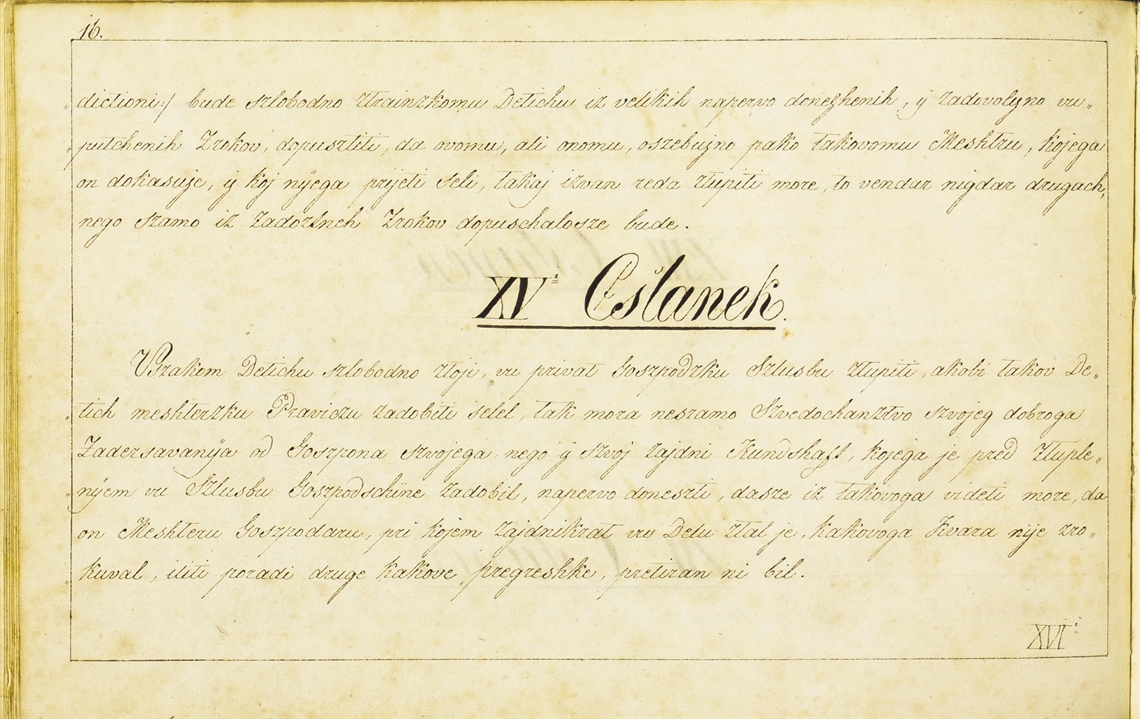 16.
dictioni:/ bude szlobodno ztrainzkomu Detichu iz velikih napervo doneshenih, y zadovolyno vu„
„putchenih Zrokov, dopusztiti, da ovomu, ali onomu, oszebujno pako takovomu Meshtru, kojega
on dokasuje, y koj nyega prijeti seli, takaj izvan reda ztupiti more, to vendar nigdar drugach,
nego szamo iz zadoztneh Zrokov dopuschalosze bude.
XV.i Cslanek.
Vszakom Detichu szlobodno ztoji, vu privat Goszpodzku Szlusbu ztupiti, akobi takov De„
„tich meshterzku Praviczu zadobiti selel, tak mora neszamo Szvedochanztvo szvojeg dobroga
Zadersavanya od Goszpona szvojega, nego y szvoj zajdni Kundshaft, kojega je pred Ztuple„
„nyem vu Szlusbu Goszpodschine zadobil, napervo doneszti, dasze iz takovoga videti more, da
on Meshteru Goszpodaru, pri kojem zajdnikrat vu Delu ztal je, kakovoga Kvara nije zro„
„kuval, iliti poradi druge kakove pregreshke, pretiran ni bil.
XVI.i